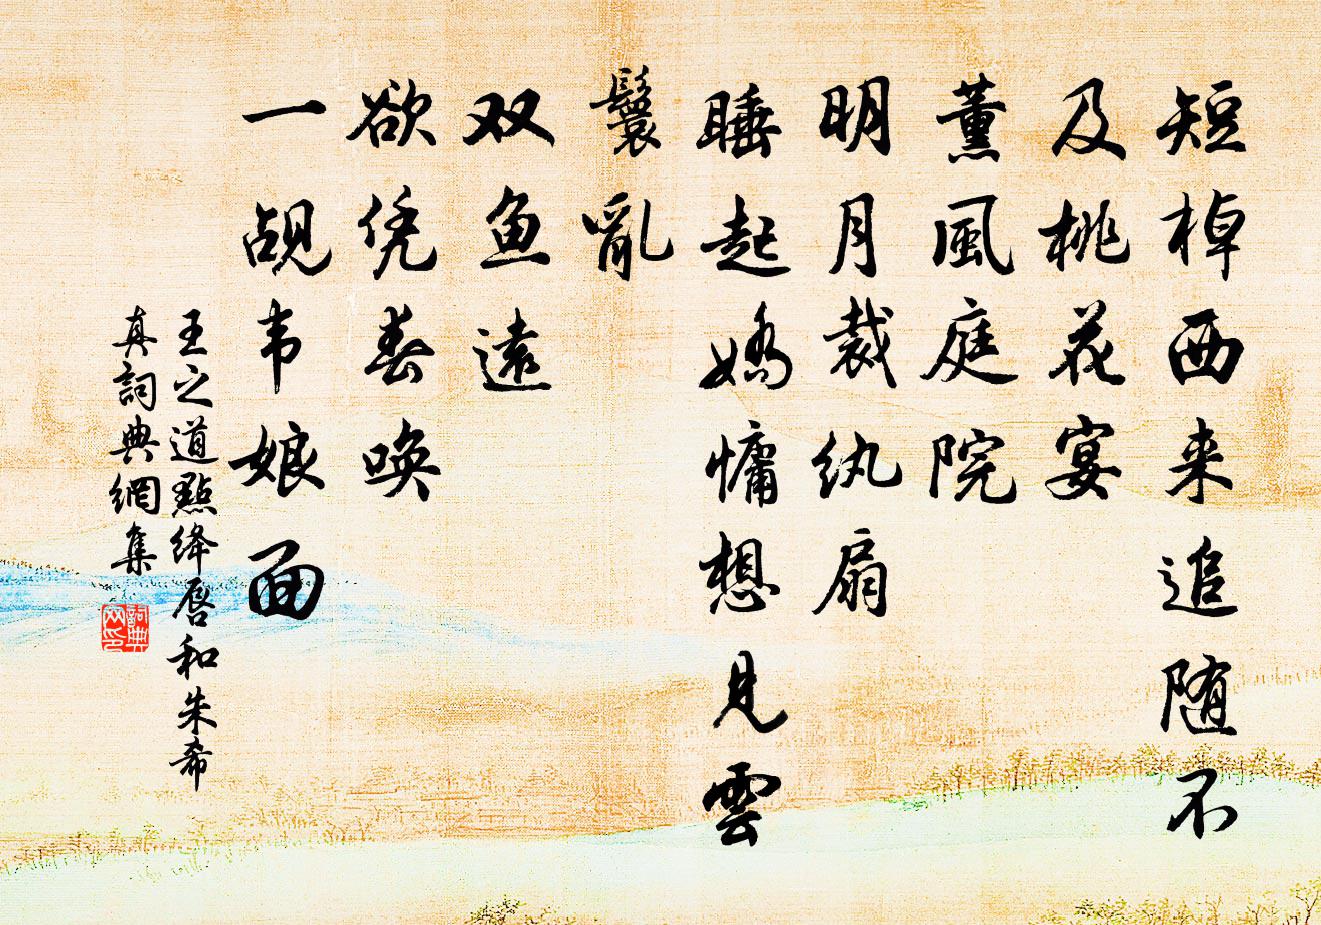 短棹西来追随不
及桃花宴
薰風庭院
明月裁纨扇
睡起娇慵想見雲
鬟亂
双鱼遠
欲凭春唤
一觇韦娘面
王之道點绛唇和朱希
真詞典網集
詞典
网印